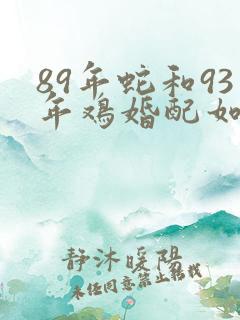 89年蛇和93
年鸡婚配如
静沐暖阳
未经同意禁止转载